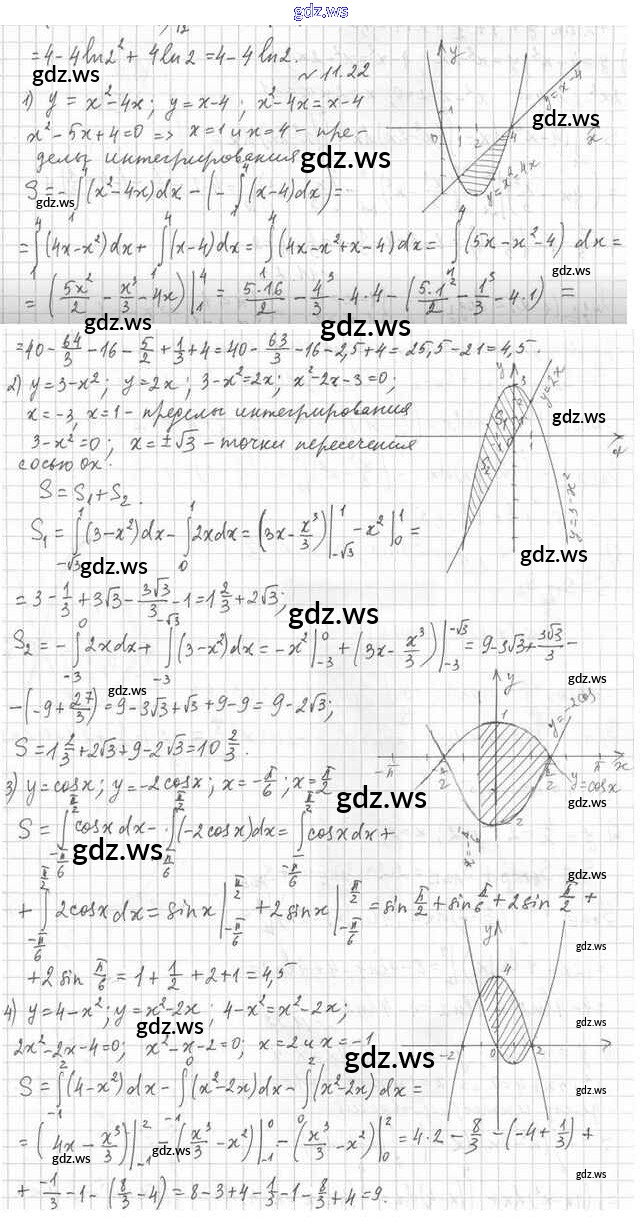 gdz.ws
= 4 - 4 ln2² + 4 ln2 = 4 - 4 ln2.
№ 11.22
1) y = x² - 4x; y = x - 4; x² - 4x = x - 4
x² - 5x + 4 = 0 => x = 1 и x = 4 - пре-
делы интегрирования
S = -∫₁⁴ (x² - 4x)dx - (-∫₁⁴ (x - 4)dx) =
= ∫₁⁴ (4x - x²)dx + ∫₁⁴ (x - 4)dx = ∫₁⁴ (4x - x² + x - 4)dx = ∫₁⁴ (5x - x² - 4) dx =
= (5x²/2 - x³/3 - 4x)|₁⁴ = 5·16/2 - 4³/3 - 4·4 - (5·1²/2 - 1³/3 - 4·1) =
= 40 - 64/3 - 16 - 5/2 + 1/3 + 4 = 40 - 63/3 - 16 - 2,5 + 4 = 25,5 - 21 = 4,5.
2) y = 3 - x²; y = 2x; 3 - x² = 2x; x² - 2x - 3 = 0;
x = -3, x = 1 - пределы интегрирования
3 - x² = 0; x = ±√3 - точки пересечения
с осью ох.
S = S₁ + S₂.
S₁ = ∫_{-√3}^{1} (3 - x²)dx - ∫₀¹ 2xdx = (3x - x³/3)|_{-√3}^{1} - x²|₀¹ =
= 3 - 1/3 + 3√3 - 3√3/3 - 1 = 1 2/3 + 2√3;
S₂ = -∫_{-3}^{0} 2xdx + ∫_{-3}^{-√3} (3 - x²)dx = -x²|_{-3}^{0} + (3x - x³/3)|_{-3}^{-√3} = 9 - 3√3 + 3√3/3 -
- (-9 + 27/3) = 9 - 3√3 + √3 + 9 - 9 = 9 - 2√3;
S = 1 2/3 + 2√3 + 9 - 2√3 = 10 2/3.
3) y = cosx; y = -2cosx; x = -π/6; x = π/2
S = ∫_{-π/6}^{π/2} cosx dx - ∫_{-π/6}^{π/2} (-2cosx)dx = ∫_{-π/6}^{π/2} cosx dx +
+ ∫_{-π/6}^{π/2} 2cosx dx = sinx|_{-π/6}^{π/2} + 2sinx|_{-π/6}^{π/2} = sin π/2 + sin π/6 + 2sin π/2 +
+ 2 sin π/6 = 1 + 1/2 + 2 + 1 = 4,5
4) y = 4 - x²; y = x² - 2x; 4 - x² = x² - 2x;
2x² - 2x - 4 = 0; x² - x - 2 = 0; x = 2 и x = -1
S = ∫_{-1}^{2} (4 - x²)dx - ∫_{-1}^{0} (x² - 2x)dx - ∫₀² (x² - 2x)dx =
= (4x - x³/3)|_{-1}^{2} - (x³/3 - x²)|_{-1}^{0} - (x³/3 - x²)|₀² = 4·2 - 8/3 - (-4 + 1/3) +
+ -1/3 - 1 - (8/3 - 4) = 8 - 3 + 4 - 1/3 - 1 - 8/3 + 4 = 9.
y
y = x - 4
0 1 4 x
y = x² - 4x
y
y = 2x
3
S₁
S₂
x
y = 3 - x²
y
1
y = -2cos
-π
π x
y = cosx
y
4
-2 0 2